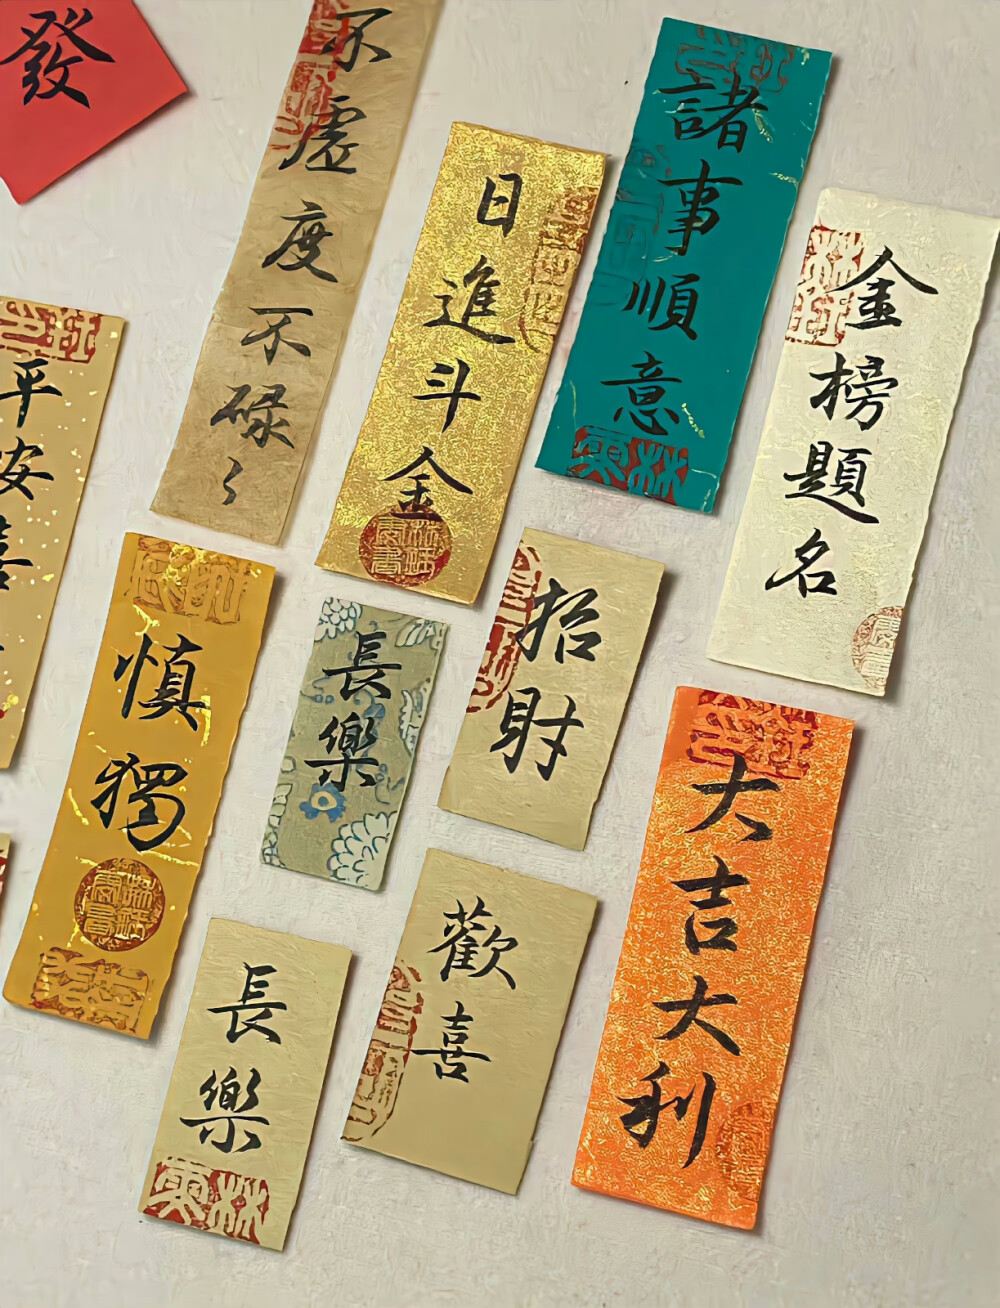 發
不虚度不碌〻
日進斗金
諸事順意
金榜題名
平安喜
慎獨
長樂
招財
大吉大利
長樂
歡喜